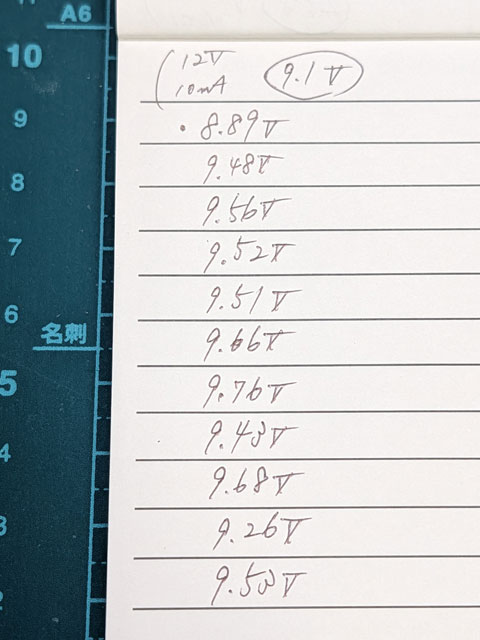 A6
10
9
8
7
6
名刺
5
4
3
2
12V
10mA
9.1V
・8.89V
9.48V
9.56V
9.52V
9.51V
9.66V
9.76V
9.43V
9.68V
9.26V
9.53V